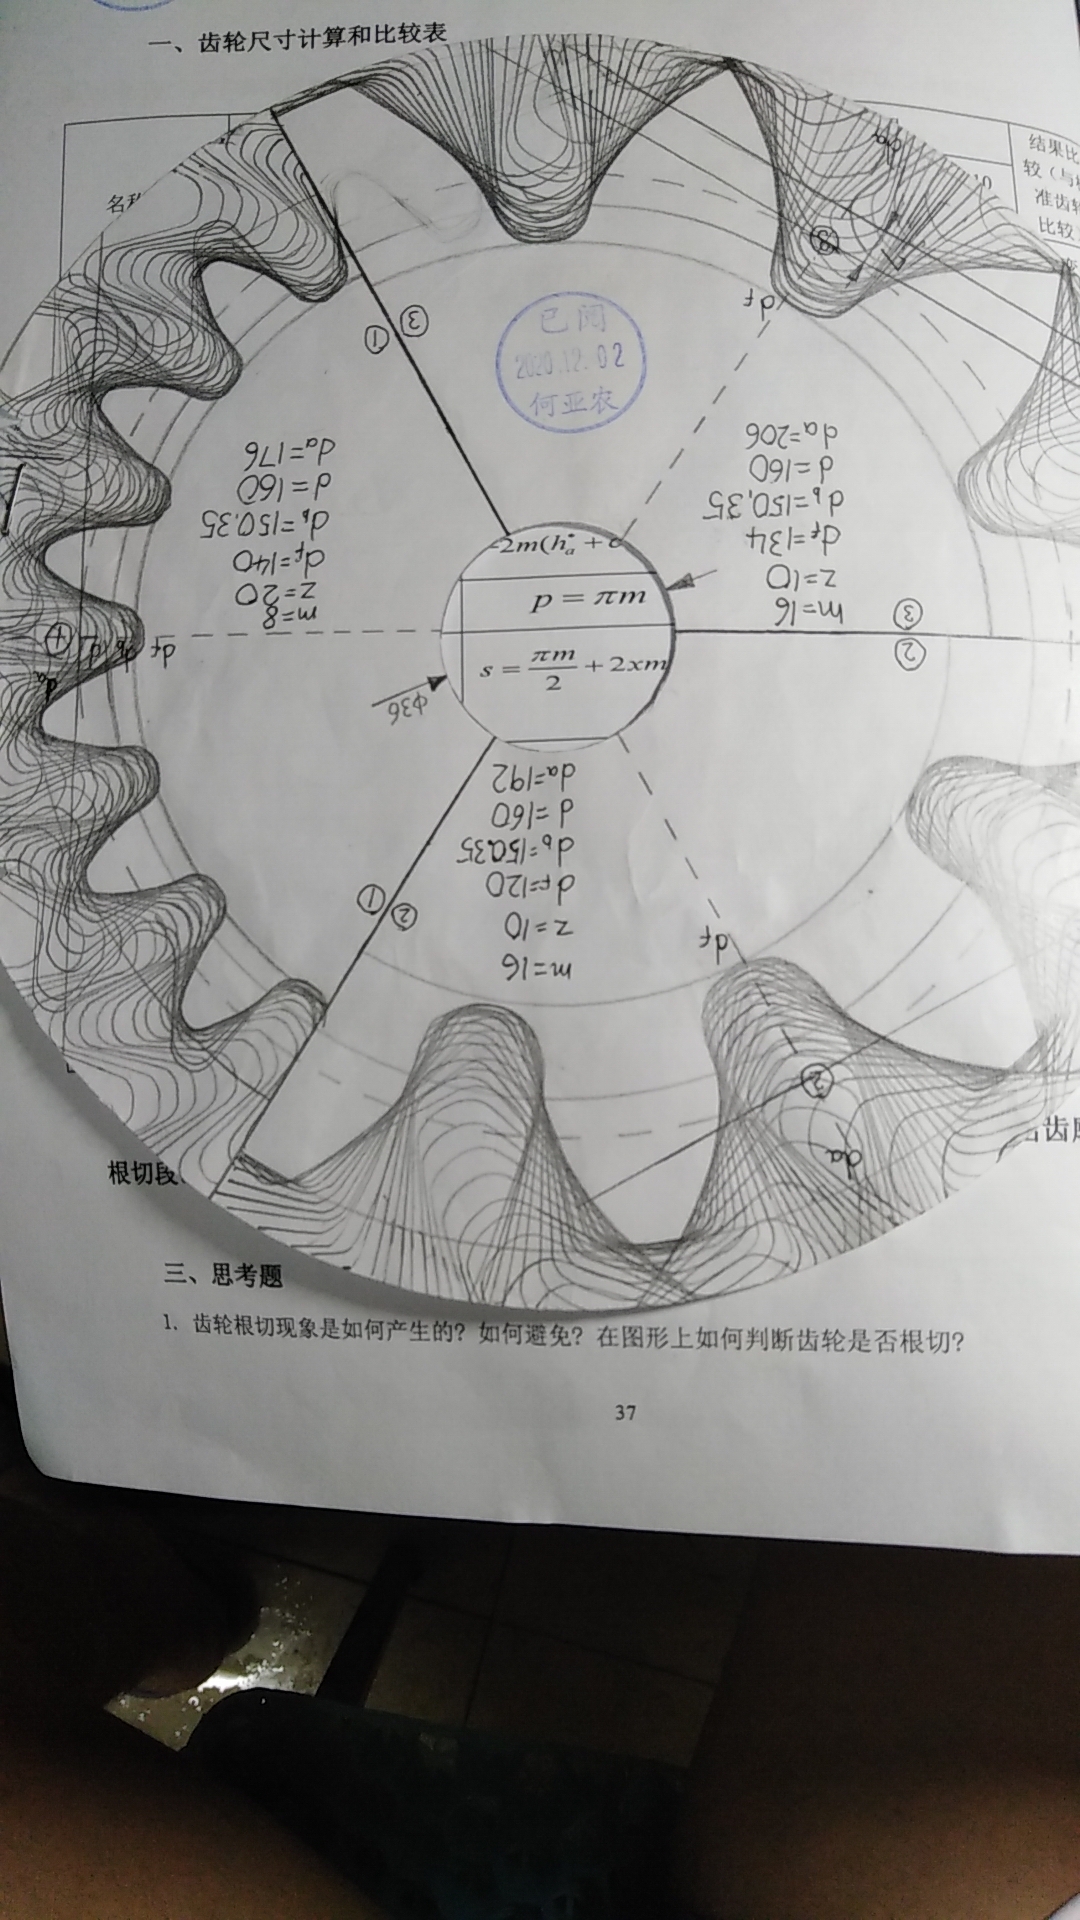 一、齿轮尺寸计算和比较表
结果比
较（与标
准齿轮
比较
名称
已阅
2020.12.02
何亚农
① ③
da=176
d=160
db=150.35
df=140
z=20
m=8
da=206
d=160
db=150.35
df=134
z=10
m=16
-2m(ha* + c
p = πm
s = πm/2 + 2xm
③
②
φ36
da=192
d=160
db=150.35
df=120
z=10
m=16
① ②
df
df
df
③
②
da
da
d
db
根切段
三、思考题
1. 齿轮根切现象是如何产生的？如何避免？在图形上如何判断齿轮是否根切？
37